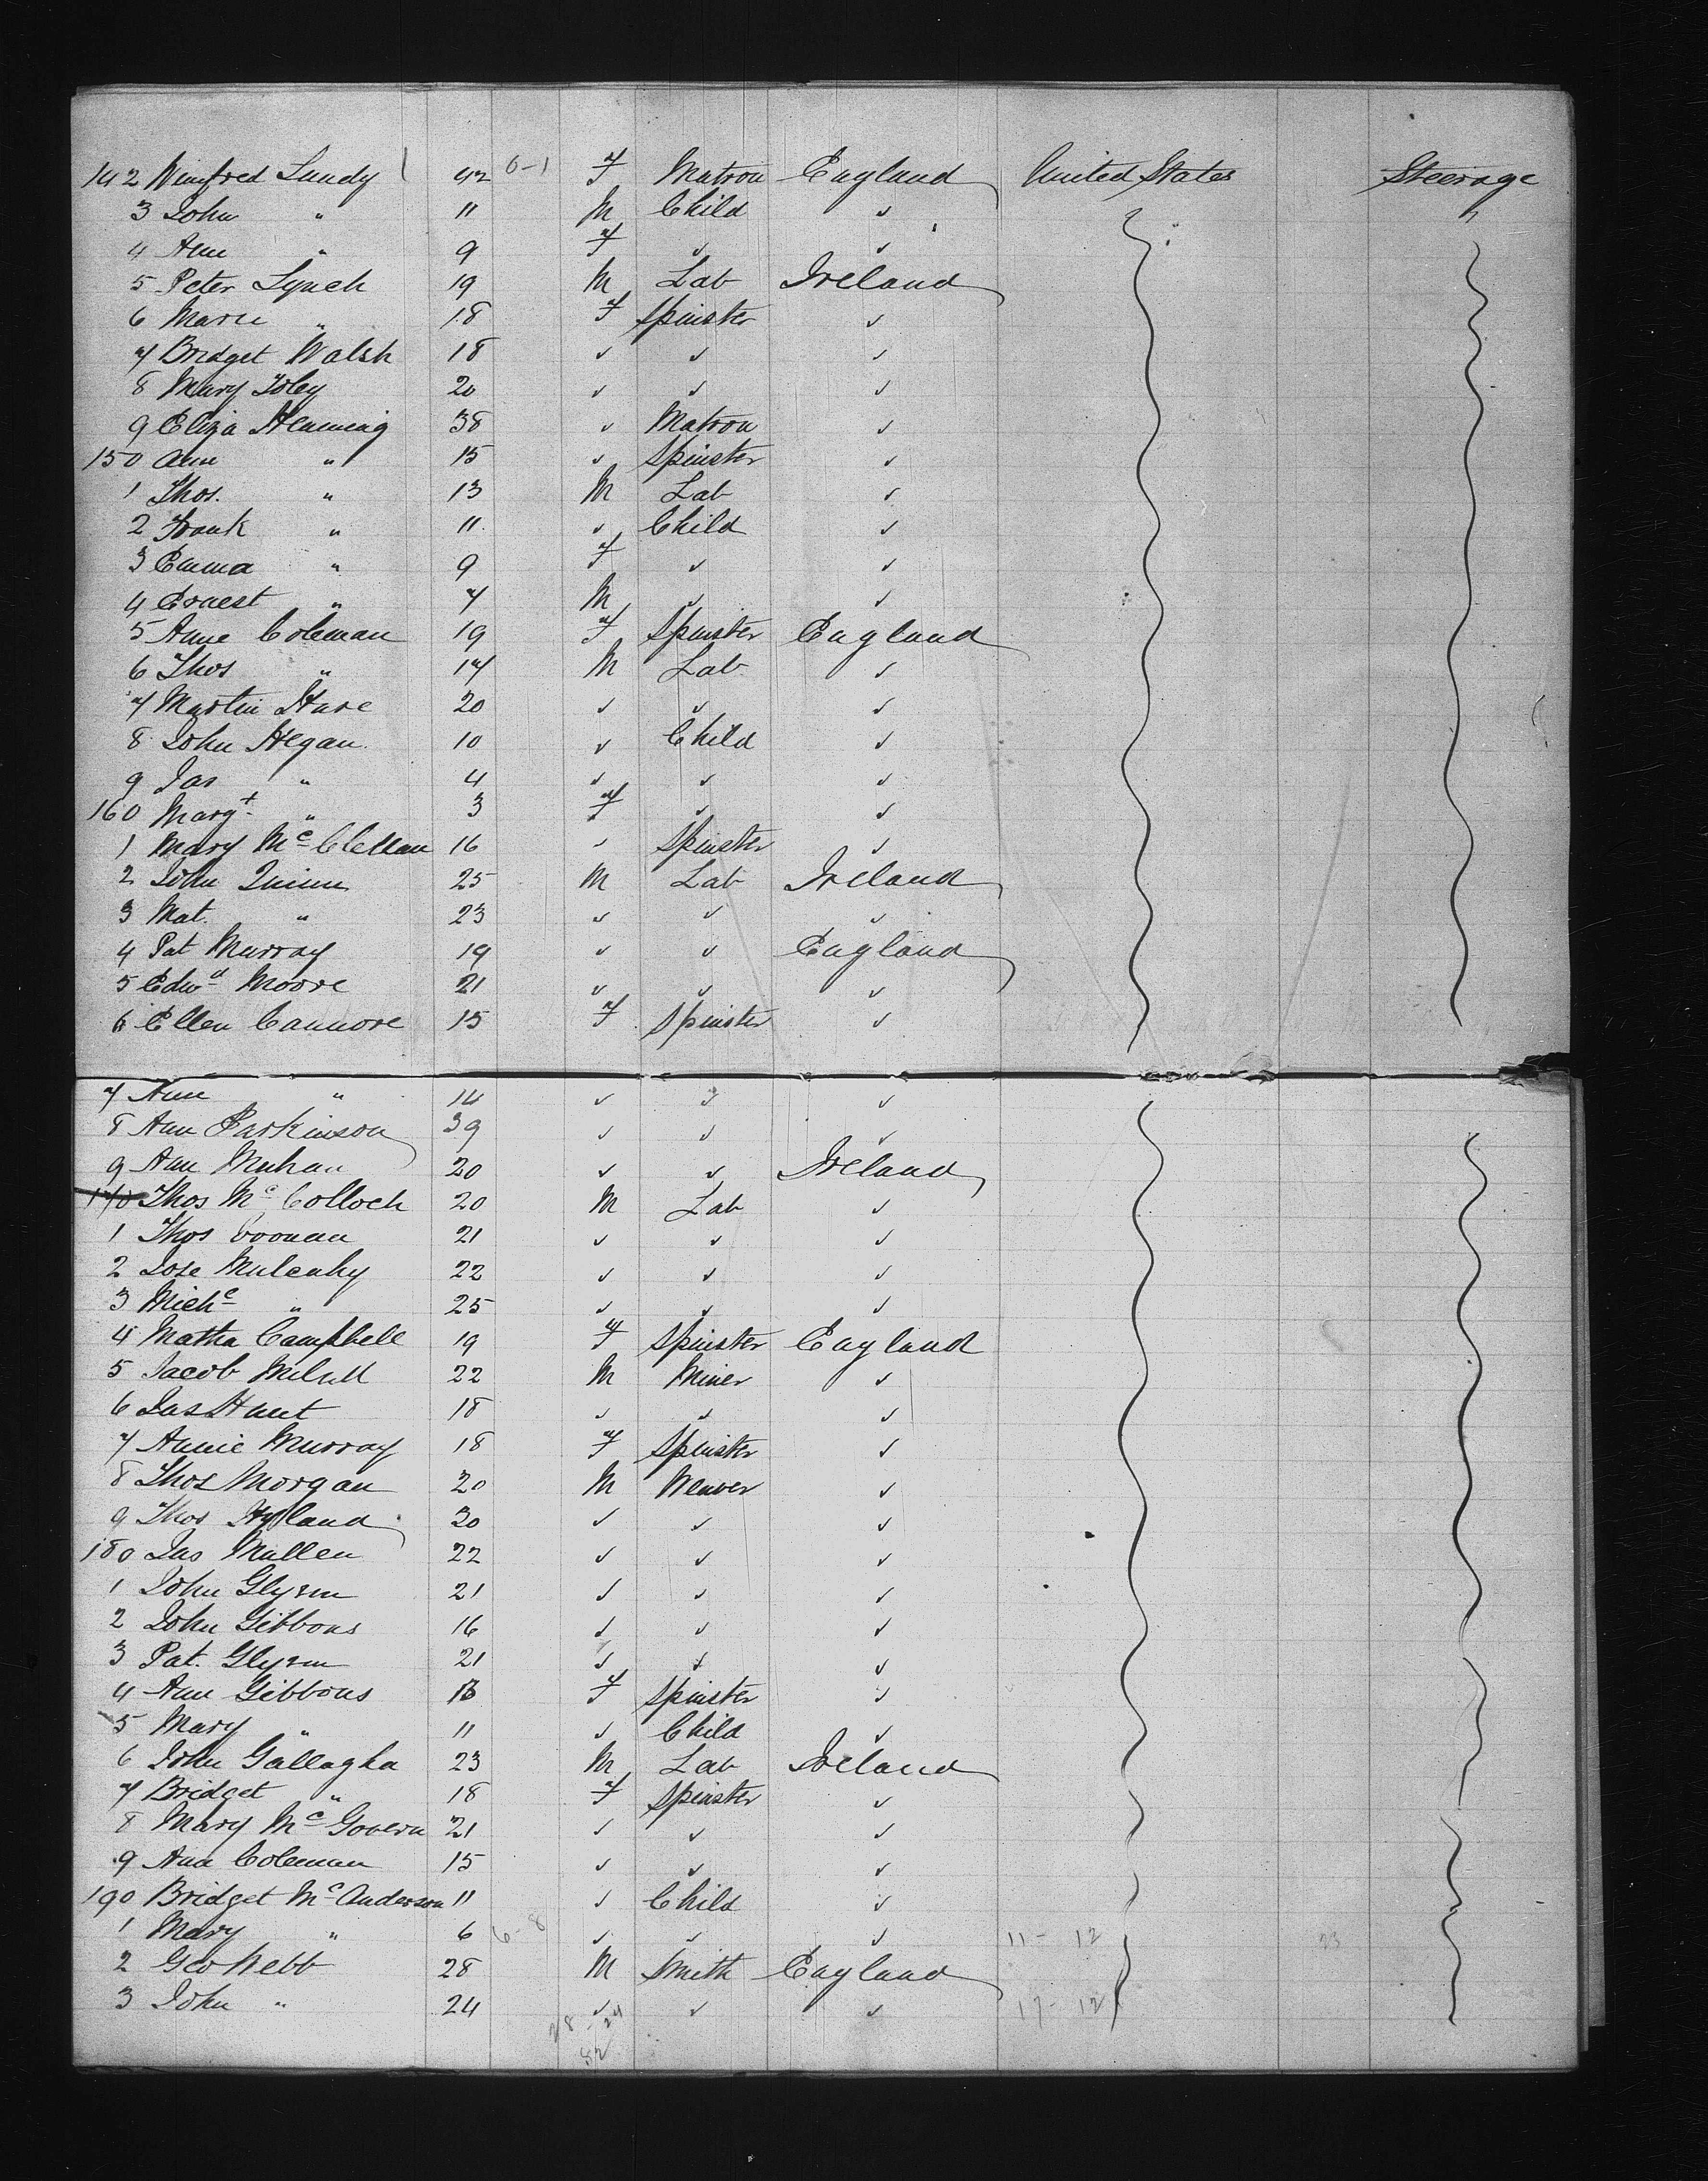 142 Winifred Lundy 42 6-1 F Matron England United States Steerage
3 John " 11 M Child ✓
4 Ann " 9 F ✓ ✓
5 Peter Lynch 19 M Lab Ireland
6 Marie " 18 F Spinster ✓
7 Bridget Walsh 18 ✓ ✓ ✓
8 Mary Foley 20 ✓ ✓ ✓
9 Eliza Fleming 38 ✓ Matron ✓
150 Ann " 15 ✓ Spinster ✓
1 Thos. " 13 M Lab ✓
2 Frank " 11 ✓ Child ✓
3 Emma " 9 F ✓ ✓
4 Ernest " 7 M ✓ ✓
5 Anne Coleman 19 F Spinster England
6 Thos " 17 M Lab ✓
7 Martin Hare 20 ✓ ✓ ✓
8 John Hegan 10 ✓ Child ✓
9 Jas " 4 ✓ ✓ ✓
160 Margt " 3 F ✓ ✓
1 Mary Mc Clellan 16 ✓ Spinster ✓
2 John Quinn 25 M Lab Ireland
3 Mat. " 23 ✓ ✓ ✓
4 Pat Murray 19 ✓ ✓ England
5 Edwd Moore 21 ✓ ✓ ✓
6 Ellen Cannore 15 F Spinster ✓
7 Ann " 14 ✓ ✓ ✓
8 Ann Parkinson 39 ✓ ✓ ✓
9 Ann Muhan 20 ✓ ✓ Ireland
170 Thos Mc Colloch 20 M Lab ✓
1 Thos 21 ✓ ✓ ✓
2 Jose Mulcahy 22 ✓ ✓ ✓
3 Michl " 25 ✓ ✓ ✓
4 Matha Campbell 19 F Spinster England
5 Jacob 22 M Miner ✓
6 Jas Hunt 18 ✓ ✓ ✓
7 Annie Murray 18 F Spinster ✓
8 Thos Morgan 20 M Weaver ✓
9 Thos Hyland 30 ✓ ✓ ✓
180 Jas Mullen 22 ✓ ✓ ✓
1 John Glynn 21 ✓ ✓ ✓
2 John Gibbons 16 ✓ ✓ ✓
3 Pat. Glynn 21 ✓ ✓ ✓
4 Ann Gibbons F Spinster ✓
5 Mary " 11 ✓ Child ✓
6 John Gallagha 23 M Lab Ireland
7 Bridget " 18 F Spinster ✓
8 Mary Mc Govern 21 ✓ ✓ ✓
9 Ann Coleman 15 ✓ ✓ ✓
190 Bridget Mc Anderson 11 ✓ Child ✓
1 Mary " 6 6-8 ✓ ✓ ✓ 11- 12 23
2 Geo Webb 28 M Smith England
3 John " 24 ✓ ✓ ✓ 17- 12
28-24
52